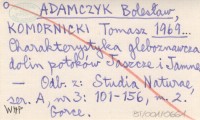 ADAMCZYK Bolesław,
KOMORNICKI Tomasz 1969...
Charakterystyka gleboznawcza
dolin potoków Jaszcze i Jamne
— Odb. z: Studia Naturae,
ser. A, nr 3: 101-156, m. 2.
Gorce.